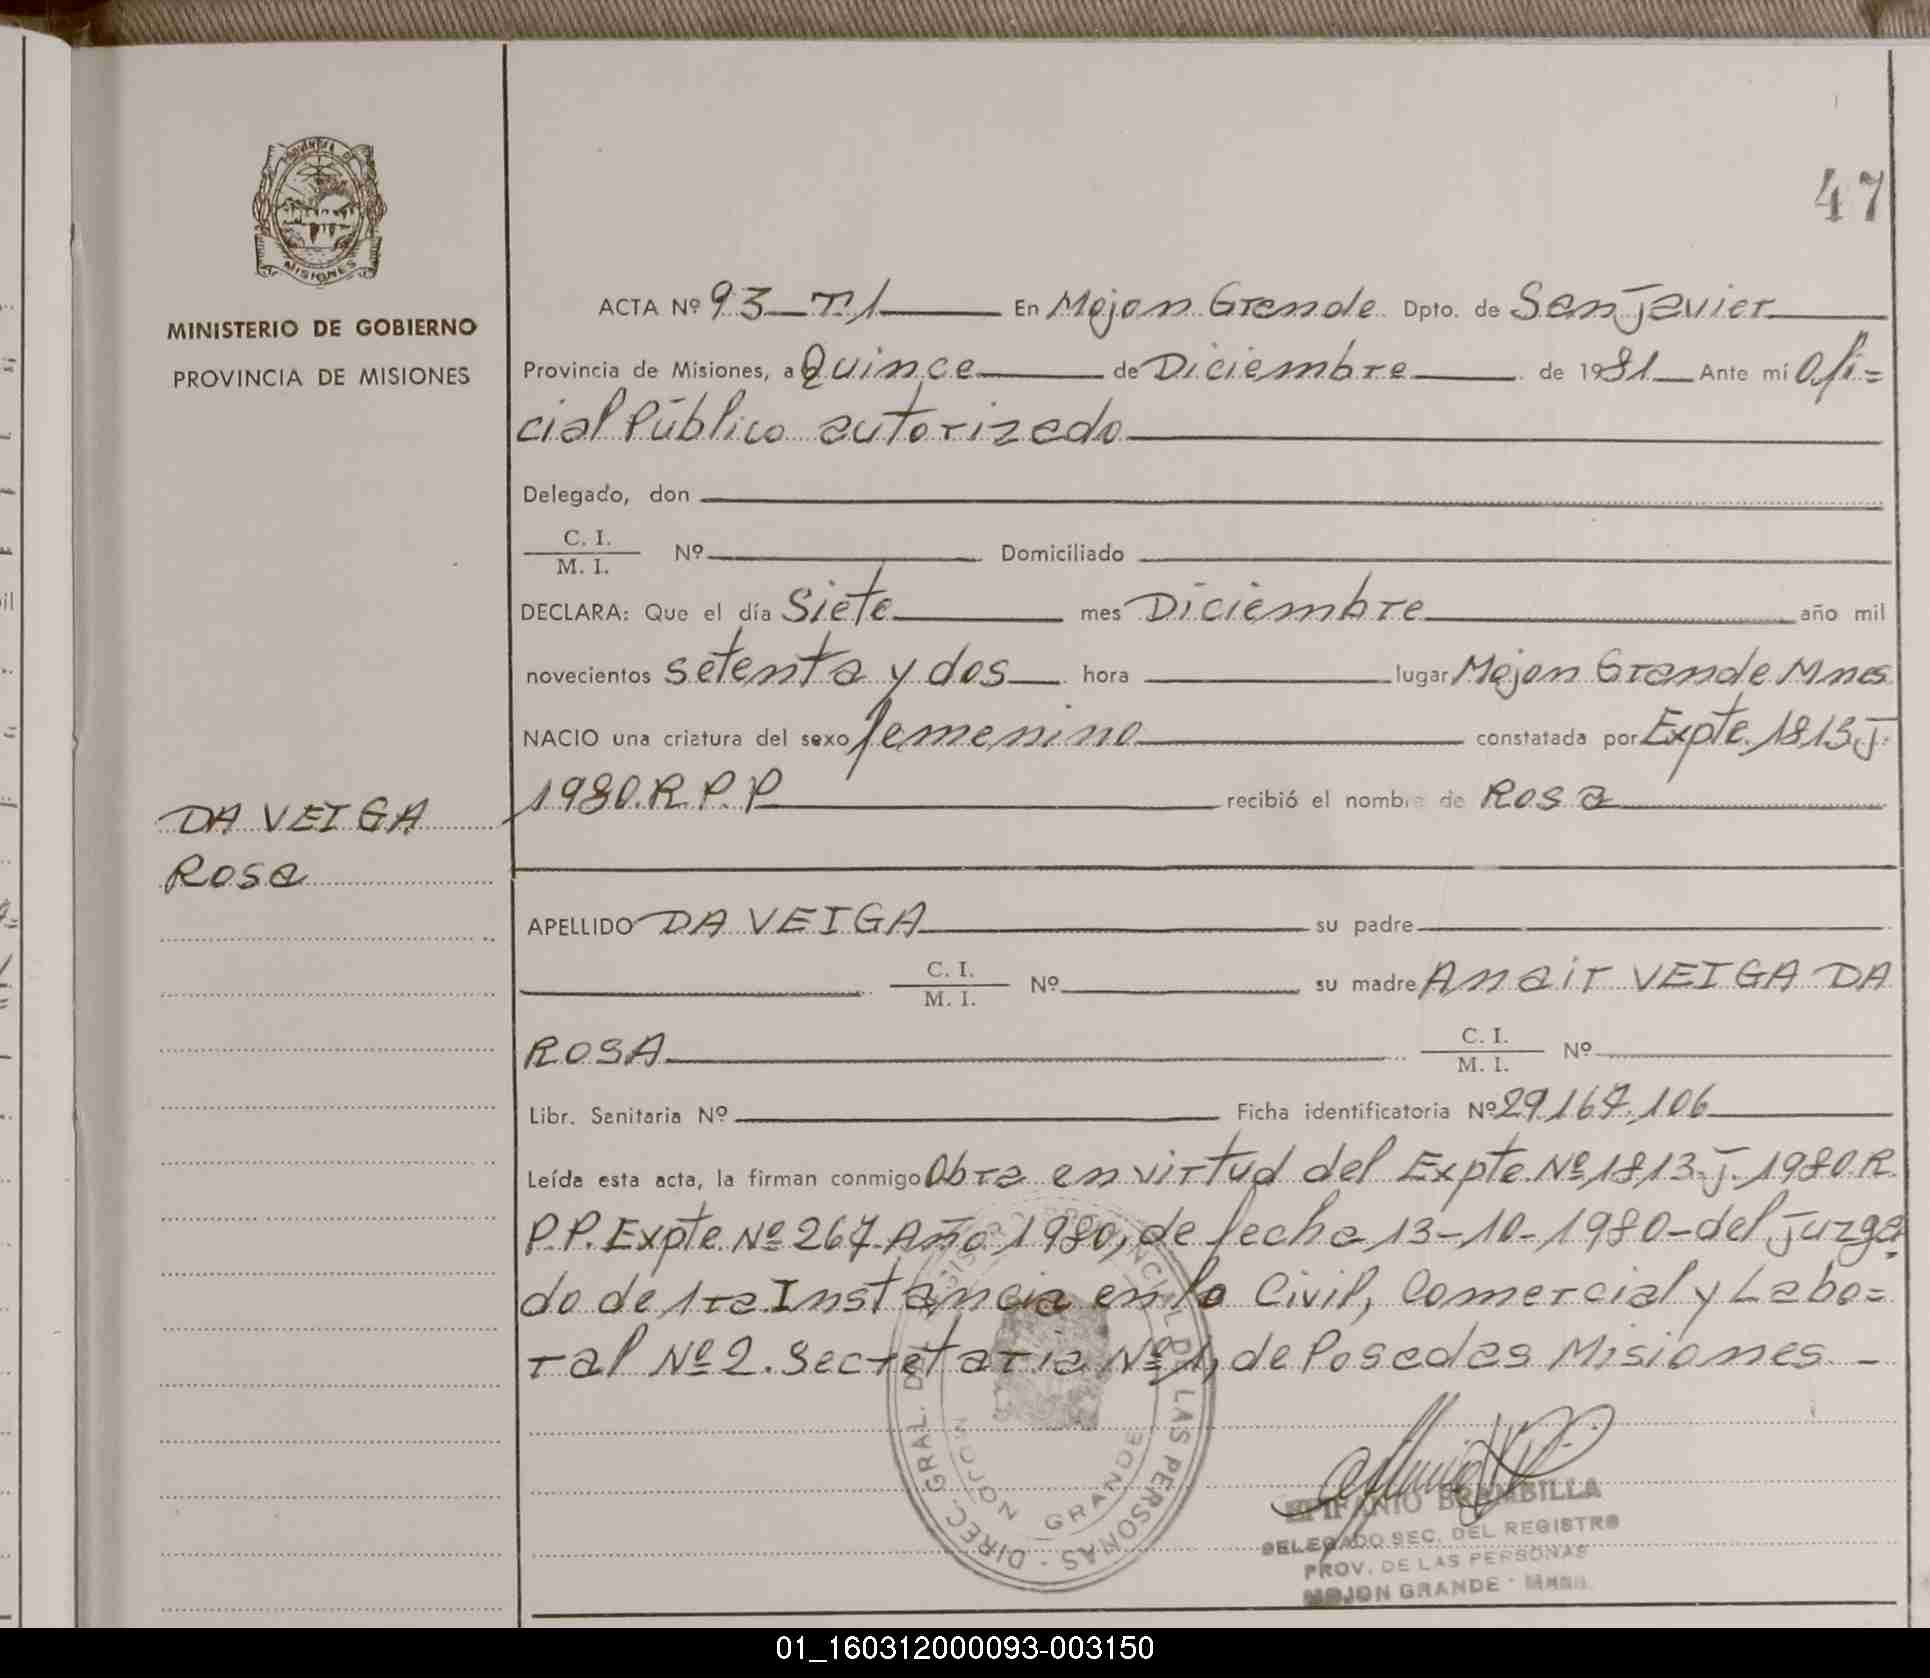 47
PROVINCIA DE
MISIONES
MINISTERIO DE GOBIERNO
PROVINCIA DE MISIONES
ACTA Nº 93 T/1 En Mojon Grande Dpto. de San Javier
Provincia de Misiones, a Quince de Diciembre de 1981 Ante mí Ofi=
cial Público autorizado
Delegado, don
C. I.
M. I. Nº Domiciliado
DECLARA: Que el día Siete mes Diciembre año mil
novecientos setenta y dos hora lugar Mojon Grande Mnes
NACIO una criatura del sexo femenino constatada por Expte. 1813-J-
1980.R.P.P recibió el nombre de Rosa
DA VEIGA
Rosa
APELLIDO DA VEIGA su padre
C. I.
M. I. Nº su madre Anair VEIGA DA
ROSA C. I.
M. I. Nº
Libr. Sanitaria Nº Ficha identificatoria Nº 29.167.106
Leída esta acta, la firman conmigo Obra en virtud del Expte. Nº 1813-J-1980.R.
P.P. Expte. Nº 267 Año 1980, de fecha 13-10-1980-del Juzga
do de 1ra Instancia en lo Civil, Comercial y Labo=
ral Nº 2. Secretaria Nº 1, de Posadas Misiones -
DIREC. GRAL. DE LAS PERSONAS
MOJON GRANDE
EPIFANIO BRAMBILLA
DELEGADO SEC. DEL REGISTRO
PROV. DE LAS PERSONAS
MOJON GRANDE - Mnes.
01_160312000093-003150